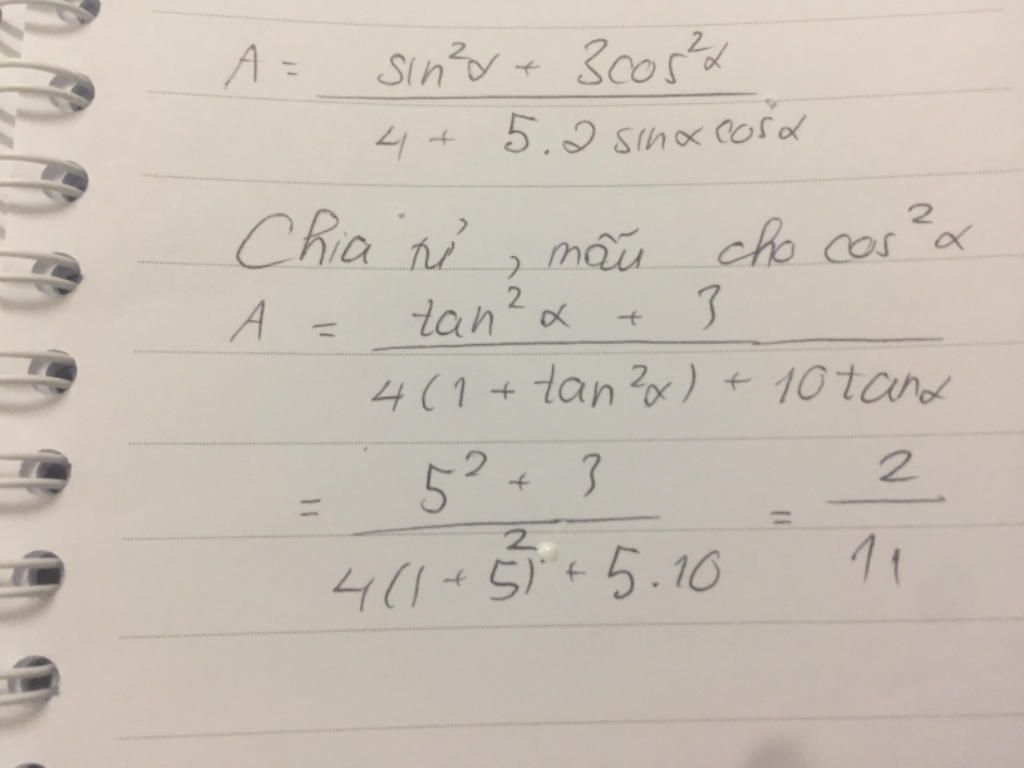 A = sin²α + 3cos²α
4 + 5.2 sinα cosα
Chia tử, mẫu cho cos²α
A = tan²α + 3
4(1 + tan²α) + 10tanα
= 5² + 3 = 2
4(1 + 5²) + 5.10 11